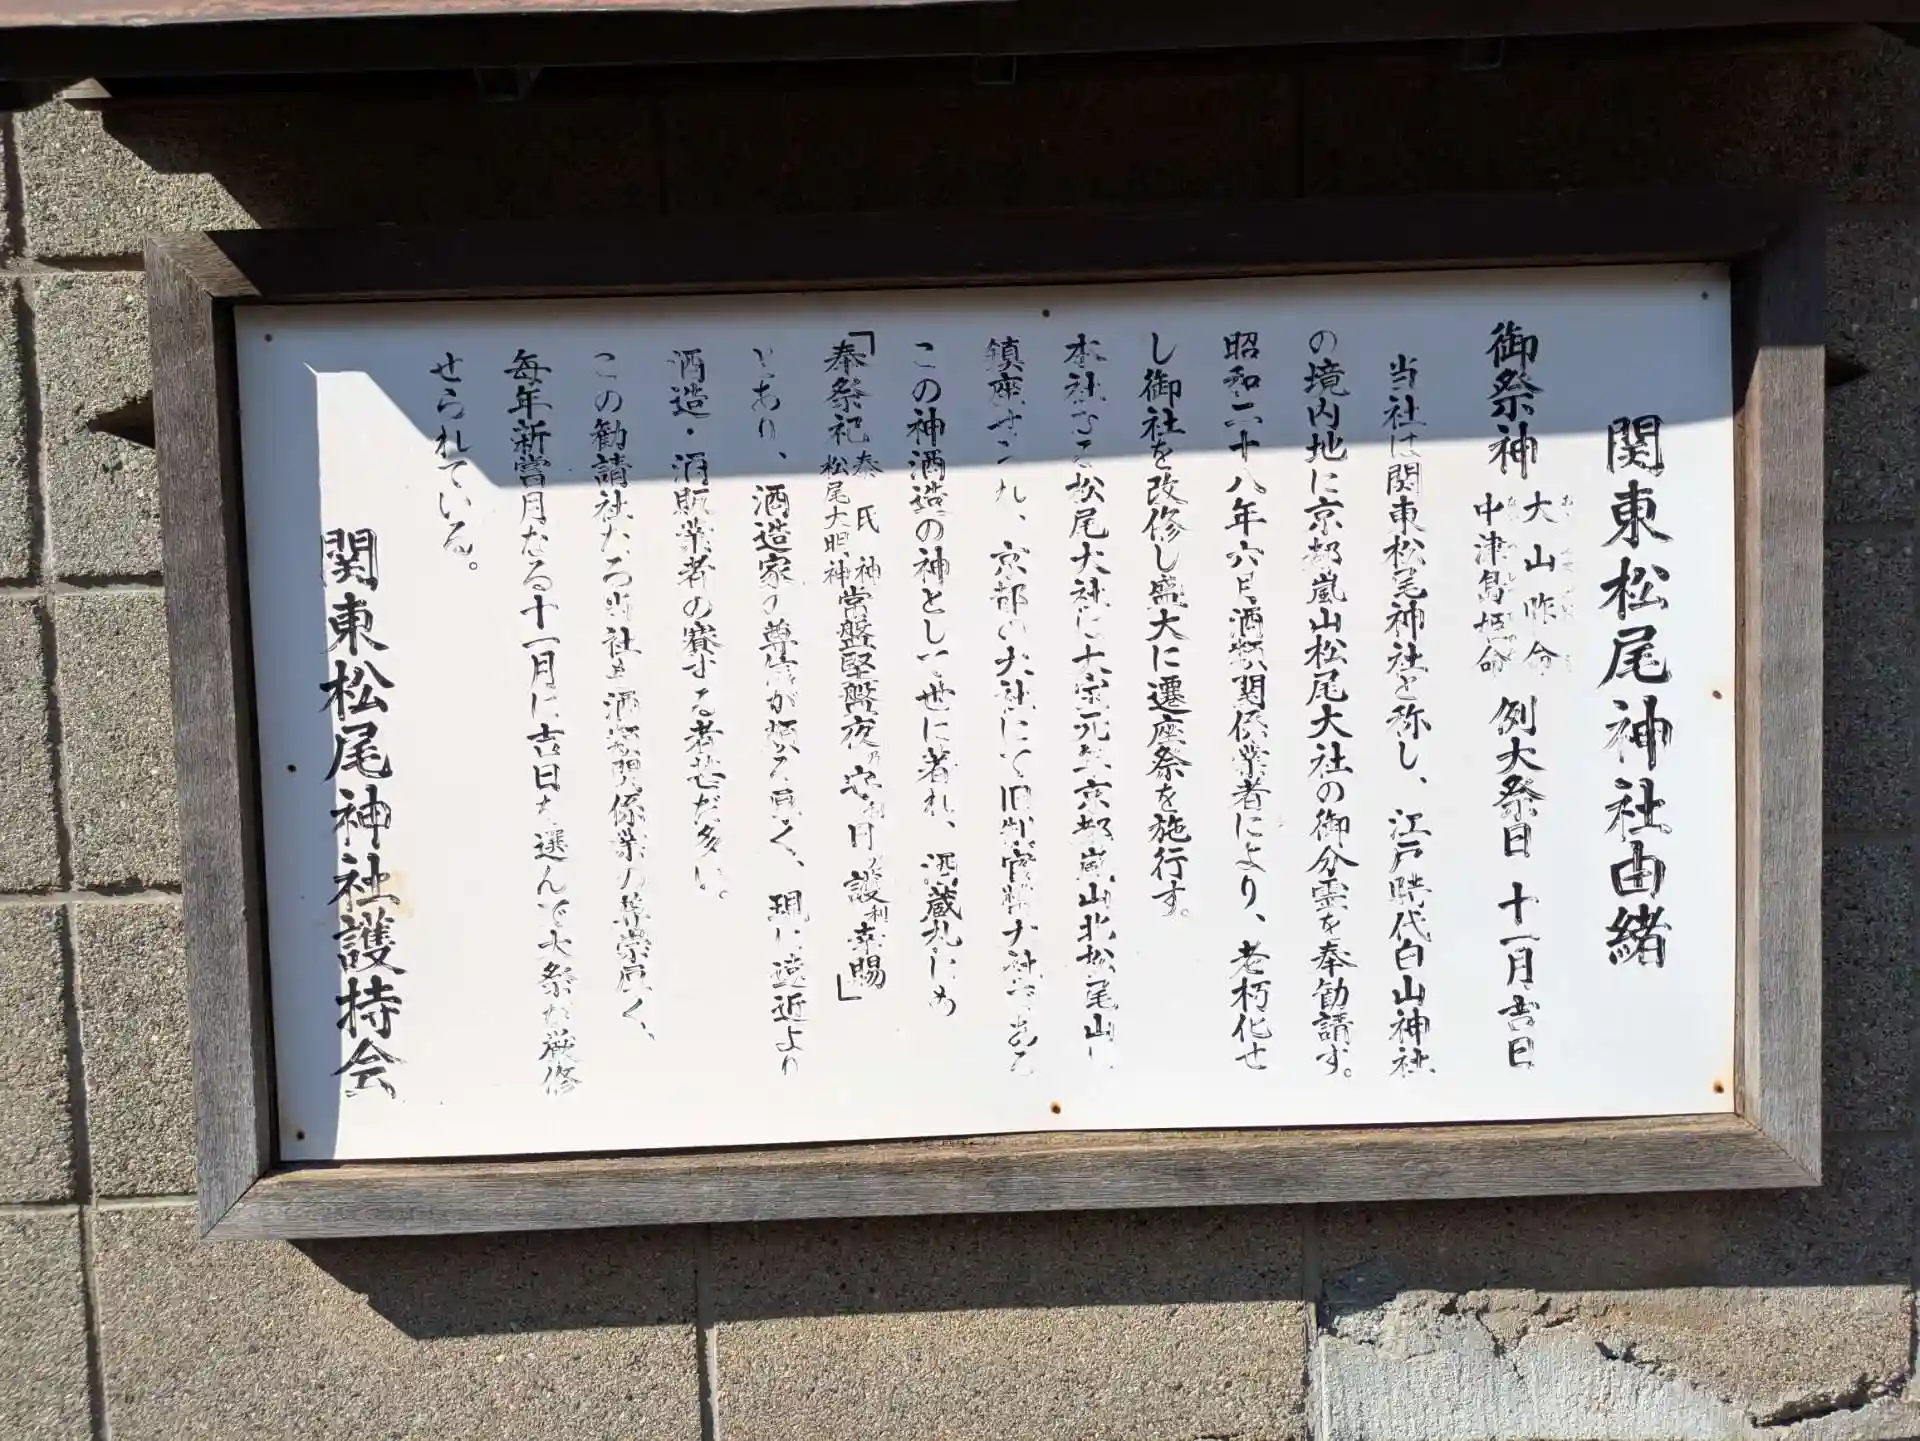 関東松尾神社由緒
御祭神 大山咋命 中津島姫命 例大祭日 十一月吉日
当社は関東松尾神社と称し、江戸時代白山神社
の境内地に京都嵐山松尾大社の御分霊を奉勧請す。
昭和二十八年六月、酒類関係業者により、老朽化せ
し御社を改修し盛大に遷座祭を施行す。
本社なる松尾大社は大宝元年京都嵐山北松尾山に
鎮座せられ、京都の大社にて旧制官幣大社である
この神酒造の神として世に著れ、酒蔵札にも
「奉祭祀 秦氏神 松尾大明神 常盤堅盤夜乃守利日乃護利幸賜」
とあり、酒造家の尊信が頗る厚く、現に遠近より
酒造・酒販業者の賽する者甚だ多い。
この勧請社たる当社も酒類関係業の尊崇厚く、
毎年新嘗月なる十一月に吉日を選んで大祭が厳修
せられている。
関東松尾神社護持会